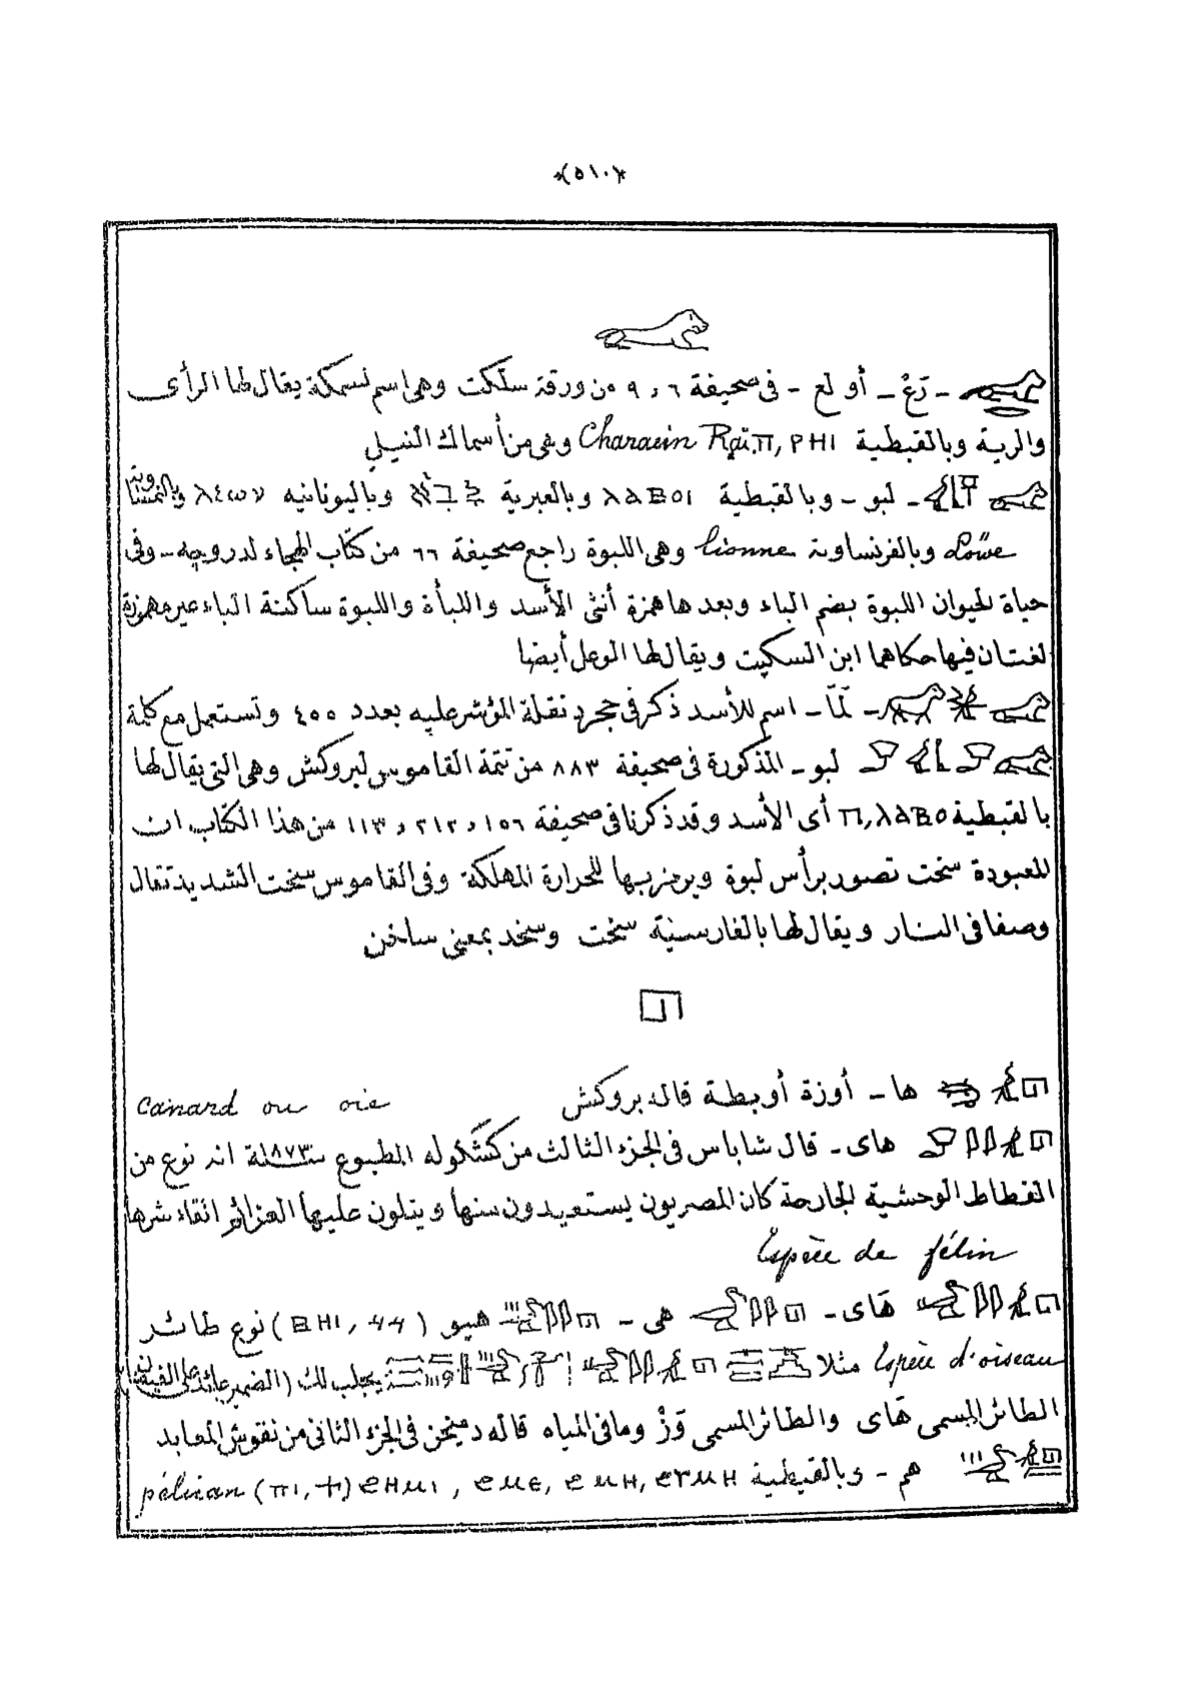 ﴿٥١٠﴾
- رَعْ - أو لع - فى صحيفة ٦ و ٩ من ورقة سلكت وهى اسم لسمكة يقال لها الرأى
والرية وبالقبطية ⲡⲓ, ⲣⲏⲓ Characin Raï وهى من أسماك النيل
- لبو - وبالقبطية ⲗⲁⲃⲟⲓ وبالعبرية وباليونانيه وبالنمساوية
Löwe وبالفرنساوية lionne وهى اللبوة راجع صحيفة ٦٦ من كتاب الهجاء لدروجه - وفى
حياة الحيوان اللبوة بضم الباء وبعدها همزة أنثى الأسد واللبأة واللبوة ساكنة الباء غير مهموزة
لغتان فيها حكاهما ابن السكيت ويقال لها الوعل أيضا
- لمّا - اسم للأسد ذكر فى حجر دنقلة المؤشر عليه بعدد ٤٥٥ وتستعمل مع كلمة
لبو - المذكورة فى صحيفة ٨٨٣ من تتمة القاموس لبروكش وهى التى يقال لها
بالقبطية ⲡⲓ, ⲗⲁⲃⲟ أى الأسد وقد ذكرنا فى صحيفة ١٥٦ و ٢١٢ و ١١٣ من هذا الكتاب ان
المعبودة سخت تصور برأس لبوة ويرمز بها للحرارة المهلكة وفى القاموس سخت الشديد تقال
وصفا فى النار ويقال لها بالفارسية سخت وسخد بمعنى ساخن
ها - أوزة أو بطة قاله بروكش canard ou oie
هاى - قال شاباس فى الجزء الثالث من كشكوله المطبوع سنة ١٨٧٣ انه نوع من
القطاط الوحشية الجارحة كان المصريون يستعيدون منها ويتلون عليها العزائم اتقاء شرها
Espèce de félin
هَاى - هى - هيو (ⲃⲏⲓ, ϥϥ) نوع طائر
Espèce d'oiseau مثلا يجلب لك (الضمير عائد على الفيضان)
الطائر المسمى هَاى والطائر المسمى وَرْ وما فى المياه قاله دميخن فى الجزء الثانى من نقوش المعابد
هم - وبالقبطية ϩⲩⲙⲏ, ϩⲙⲏ, ϩⲙⲉ, ϩⲏⲙⲓ (ⲡⲓ, ϯ) pélican